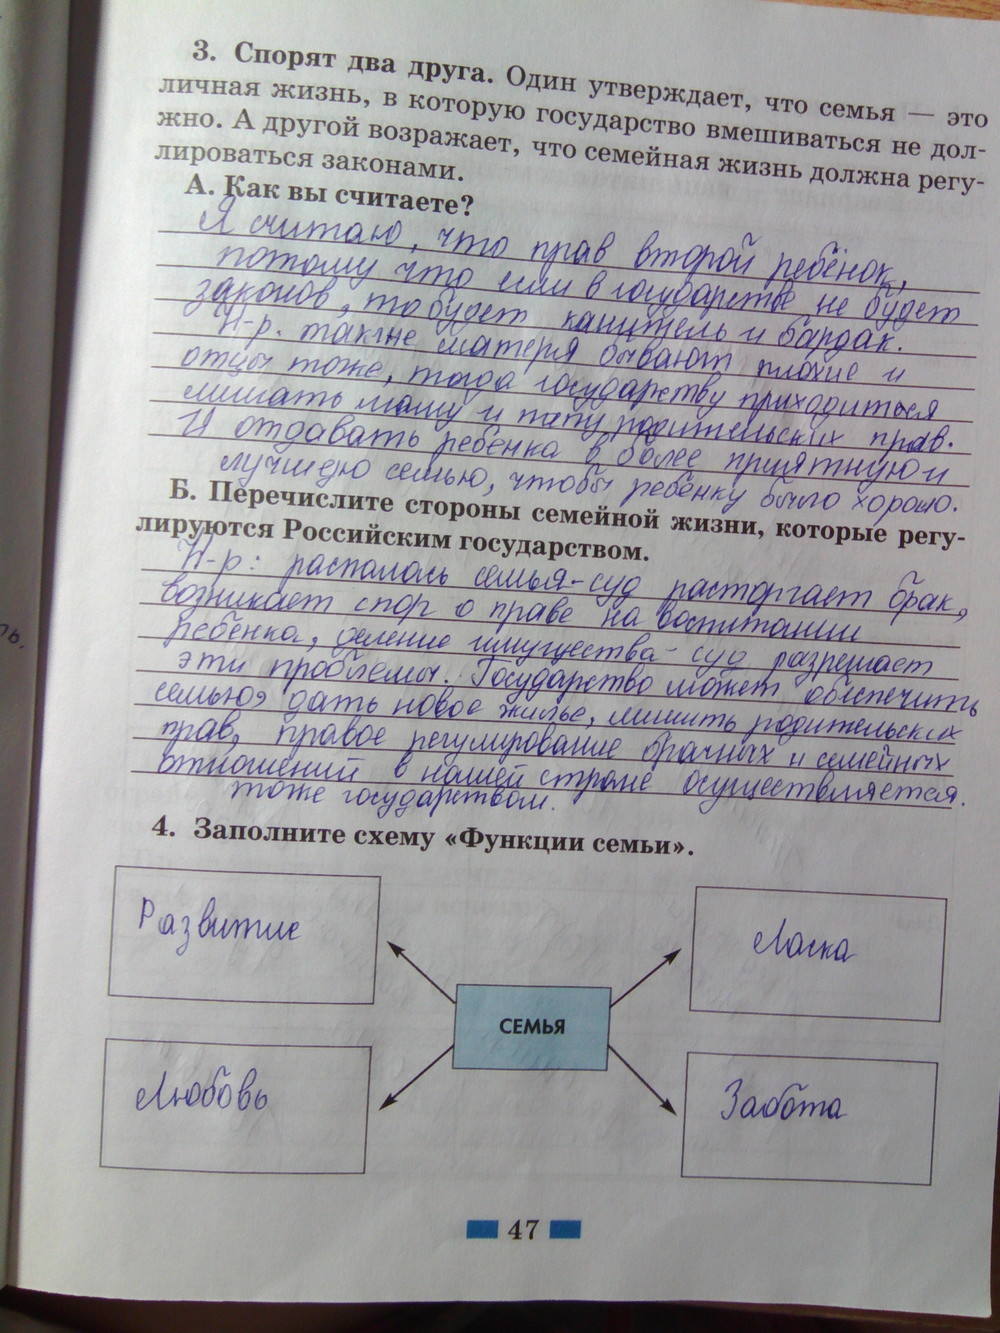 3. Спорят два друга. Один утверждает, что семья — это
личная жизнь, в которую государство вмешиваться не дол-
жно. А другой возражает, что семейная жизнь должна регу-
лироваться законами.
А. Как вы считаете?
Я считаю, что прав второй ребёнок,
потому что если в государстве не будет
законов, то будет канитель и бардак.
Н-р. также матеря бывают плохие и
отцы тоже, тогда государству приходиться
лишать маму и папу родительских прав.
И отдавать ребёнка в более приятную и
лучшую семью, чтобы ребёнку было хорошо.
Б. Перечислите стороны семейной жизни, которые регу-
лируются Российским государством.
Н-р: распалась семья-суд расторгает брак,
возникает спор о праве на воспитании
ребёнка, деление имущества- суд разрешает
эти проблемы. Государство может обеспечить
семью, дать новое жильё, лишить родительских
прав, правое регулирование брачных и семейных
отношений в нашей стране осуществляется
тоже государством.
4. Заполните схему «Функции семьи».
Развитие
Ласка
СЕМЬЯ
Любовь
Забота
47